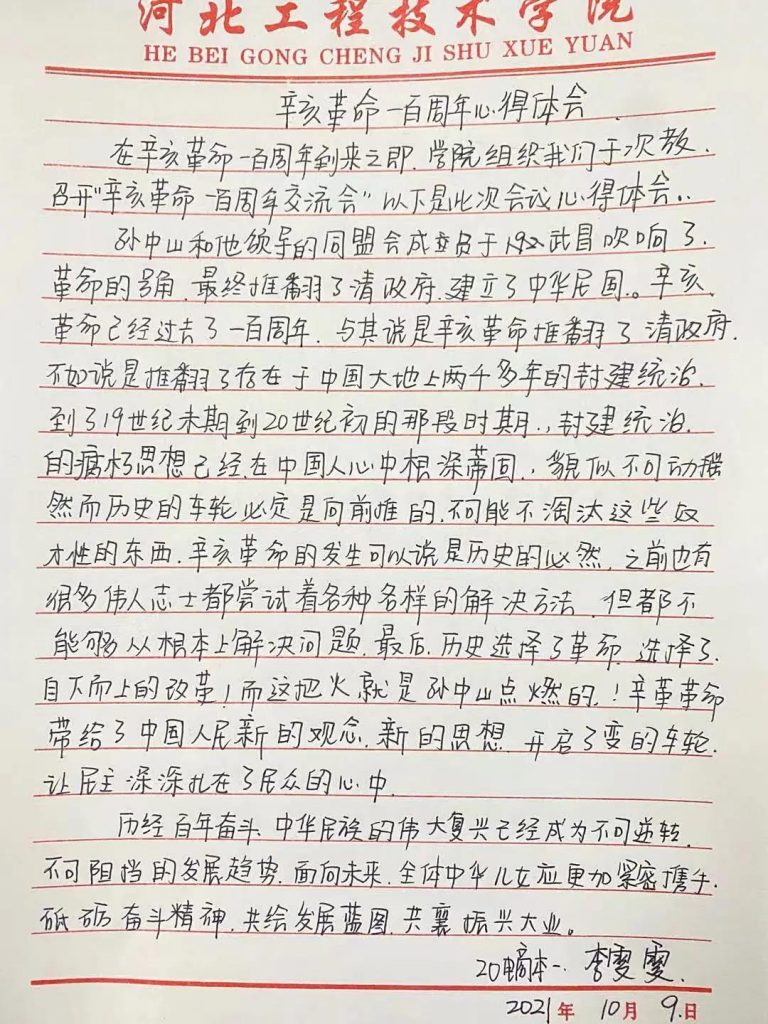 河北工程技术学院
HE BEI GONG CHENG JI SHU XUE YUAN
辛亥革命一百周年心得体会.
在辛亥革命一百周年到来之即.学院组织我们于次教.
召开"辛亥革命一百周年交流会"以下是此次会议心得体会..
孙中山和他领导的同盟会成员于武昌吹响了.
革命的号角.最终推翻了清政府.建立了中华民国。辛亥.
革命已经过去了一百周年.与其说是辛亥革命推翻了清政府.
不如说是推翻了存在于中国大地上两千多年的封建统治.
到了19世纪末期到20世纪初的那段时期.,封建统治.
的腐朽思想已经在中国人心中根深蒂固.,貌似不可动摇
然而历史的车轮必定是向前推的.不可能不淘汰这些奴
才性的东西.辛亥革命的发生可以说是历史的必然.之前也有
很多伟人志士都尝试着各种各样的解决方法.但都不
能够从根本上解决问题.最后.历史选择了革命.选择了.
自下而上的改革!而这把火就是孙中山点燃的.!辛革革命
带给了中国人民新的观念.新的思想.开启了变的车轮.
让民主深深扎在了民众的心中.
历经百年奋斗.中华民族的伟大复兴已经成为不可逆转.
不可阻挡的发展趋势.面向未来.全体中华儿女应更加紧密携手.
砥砺奋斗精神.共绘发展蓝图.共襄振兴大业。
20本一.李雯雯.
2021年10月9.日